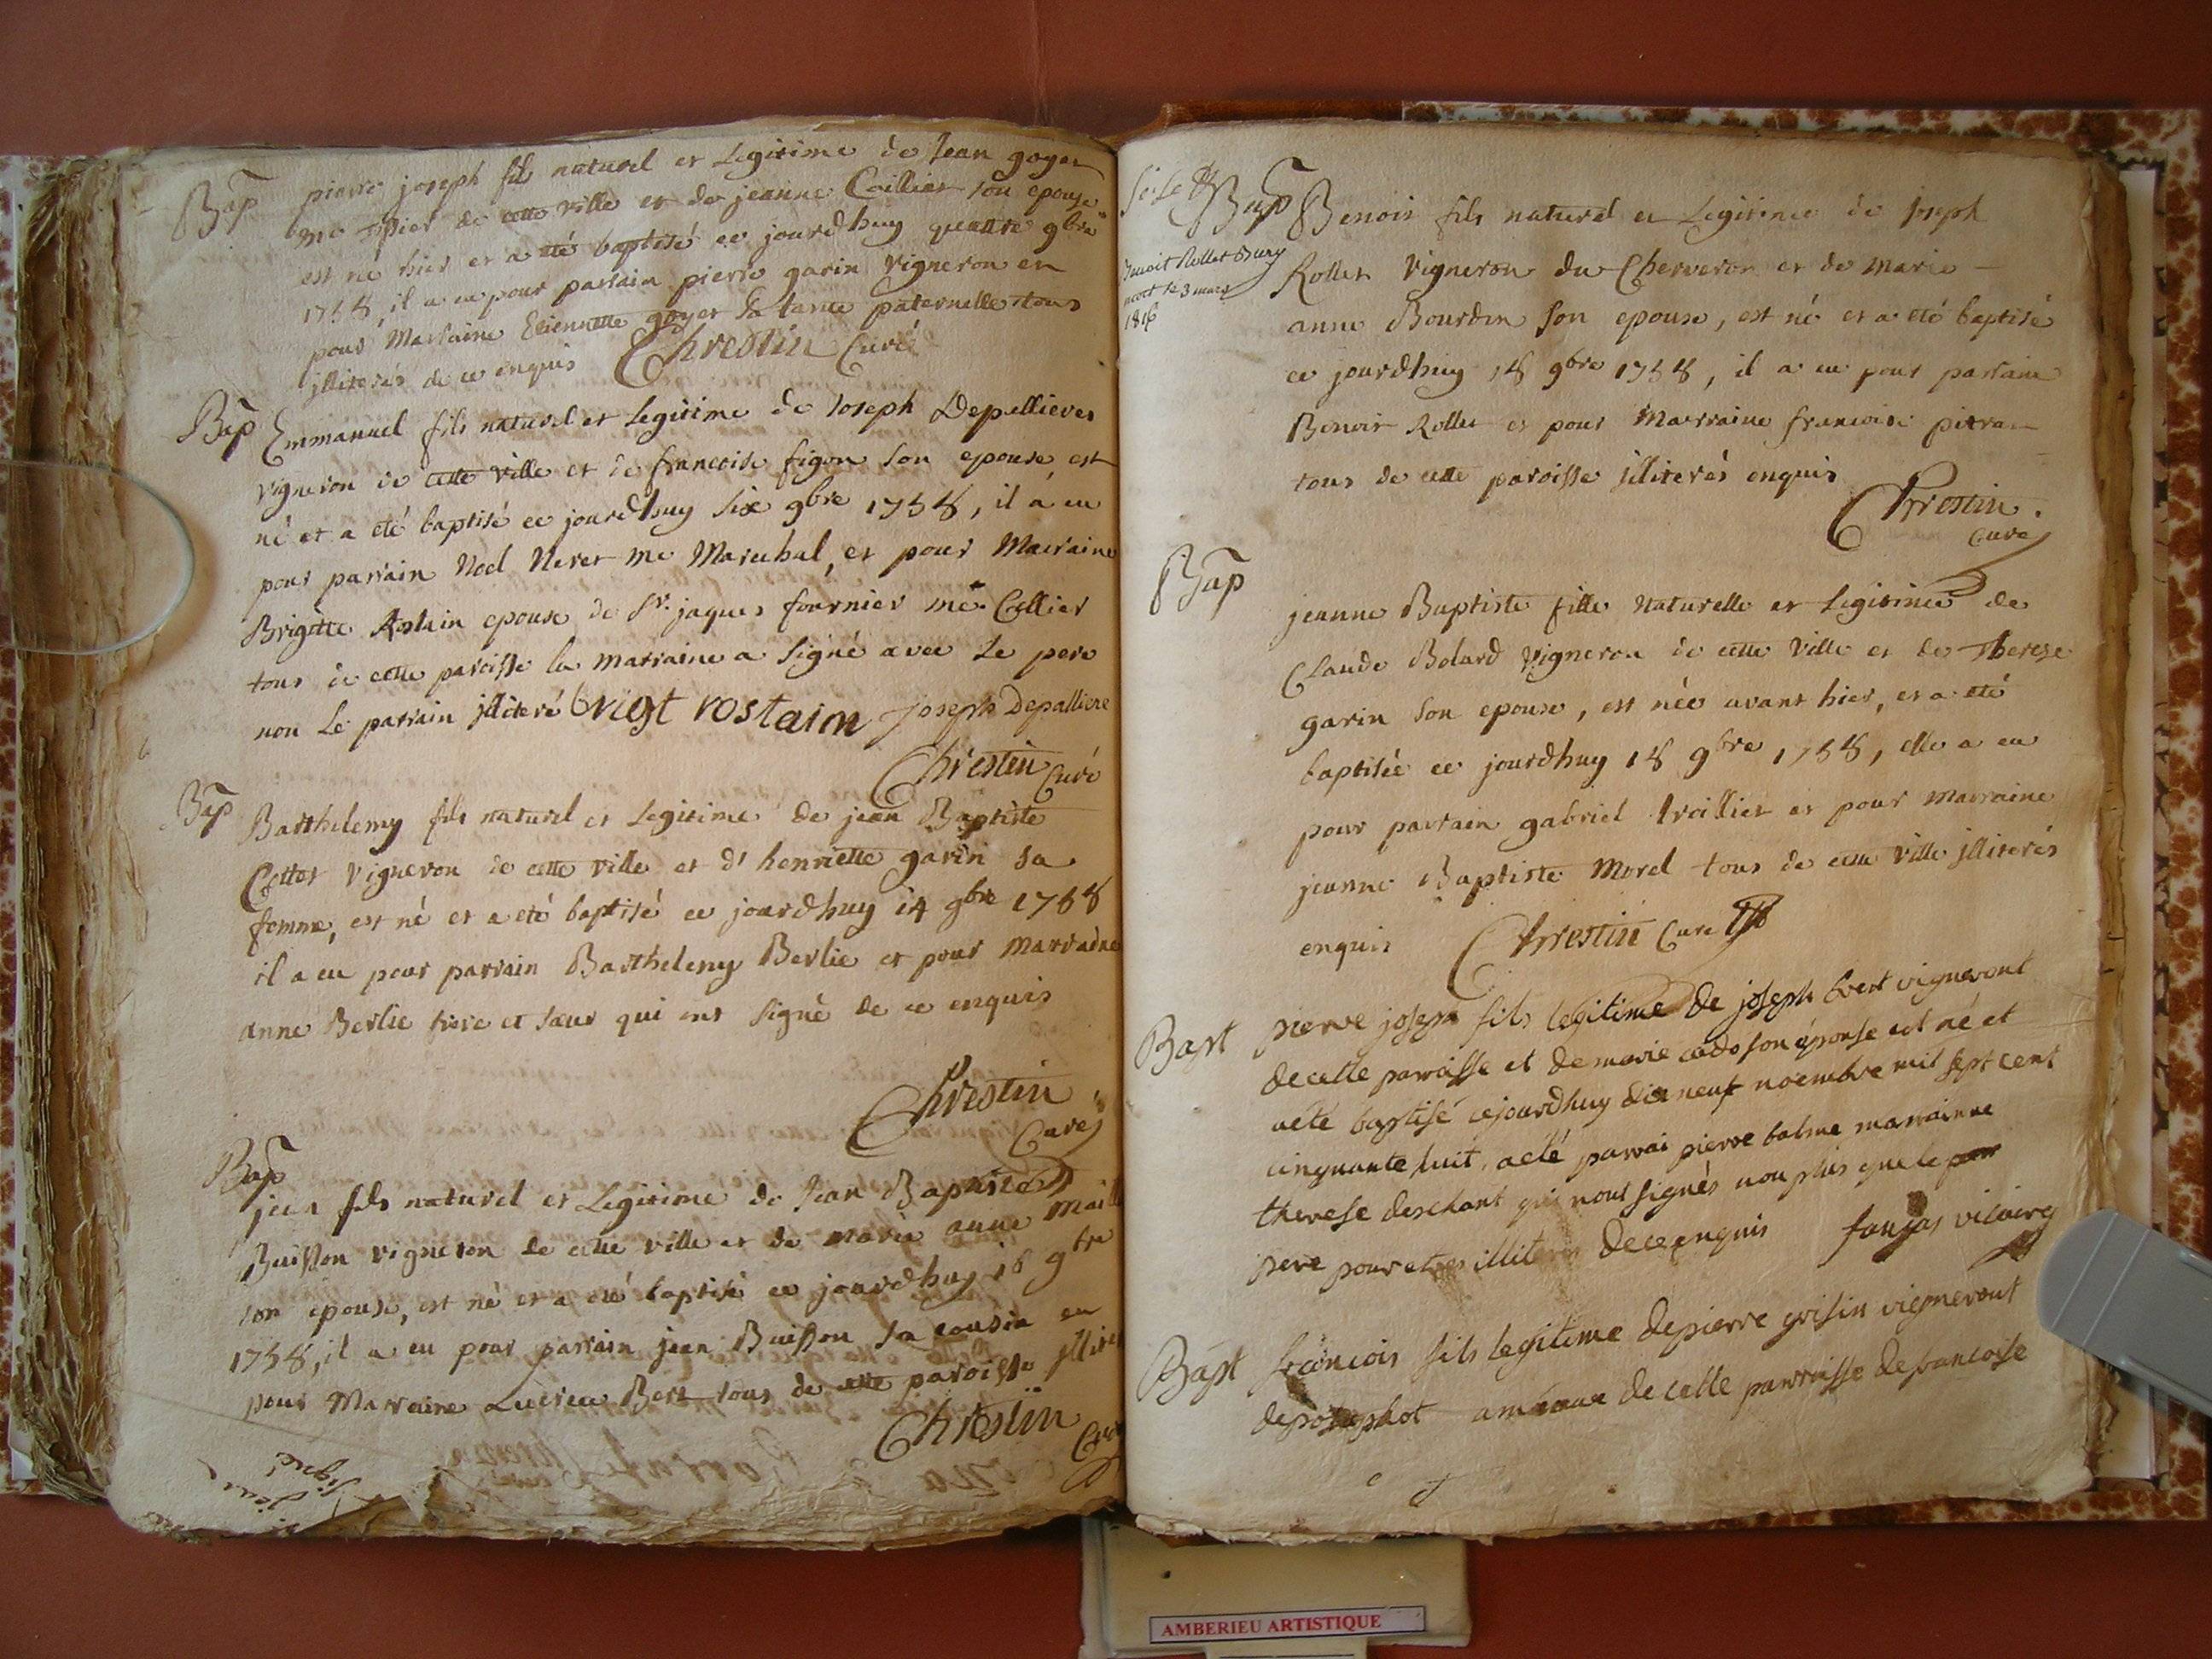 Bap pierre joseph fils naturel et Legitime de Jean goyer
me de cette ville et de jeanne Caillier son epouse
est né hier et a eté baptisé ce jourdhuy quattre 9bre
1758, il a eu pour parrain pierre garin vigneron et
pour Marraine Etiennette goyer Sa tante paternelle tous
jlliterés de ce enquis Chrestin Curé
Bap Emmanuel fils naturel et Legitime de Joseph Depellieres
vigneron de cette ville et de francoise figon son epouse, est
né et a eté baptisé ce jourdhuy Six 9bre 1758, il a eu
pour parrain Noel Neret me Marechal, et pour Marraine
Brigitte Rostain epouse de Sr. jaques fournier me Collier
tous de cette paroisse la marraine a Signé avec Le pere
non Le parrain jlliteré brigt rostain joseph Depalliere
Chrestin Curé
Bap Barthelemy fils naturel et Legitime de jean Baptiste
Cottet vigneron de cette ville et d'henriette garin sa
femme, est né et a eté baptisé ce jourdhuy 14 9bre 1758
il a eu pour parrain Barthelemy Berlie et pour Marraine
anne Berlie frere et sœur qui ont Signé de ce enquis
Chrestin
Curé
Bap
jean fils naturel et Legitime de Jean Baptiste
Buisson vigneron de cette ville et de marie anne
son epouse, est né et a eté baptisé ce jourdhuy 18 9bre
1758, il a eu pour parrain jean Buisson Sa cousin et
pour Marraine Lucrece Bert tous de cette paroisse
Chrestin
Curé
Signé
Bap Benoit fils naturel et Legitime de Joseph
Benoit Rollet
mort le 3 mars
1816
Rollet vigneron du Cherveron et de Marie
anne Bourdin son epouse, est né et a eté baptisé
ce jourdhuy 18 9bre 1758, il a eu pour parrain
Benoit Rollet et pour Marraine francoise
tous de cette paroisse jlliterés enquis
Chrestin.
Curé
Bap
jeanne Baptiste fille Naturelle et Legitime de
Claude Bolard vigneron de cette ville et de Therese
garin son epouse, est née avant hier, et a eté
baptisée ce jourdhuy 18 9bre 1758, elle a eu
pour parrain gabriel troillier et pour marraine
jeanne Baptiste Morel tous de cette ville jlliterés
enquis Chrestin Curé
Bapt pierre joseph fils legitime de joseph bert vigneront
de cette parroisse et de marie cado son éponse est né et
aété baptisé cejourdhuy dix neuf noembre mil sept cent
cinquante huit, aeté parrai pierre balme marrainne
therese deschant qui nont signés non plus que le
pere pour etres illiterés de ce enquis faujas vicaire
Bapt francois fils legitime de pierre grisin vigneront
de cette parroisse de francoise
AMBERIEU ARTISTIQUE